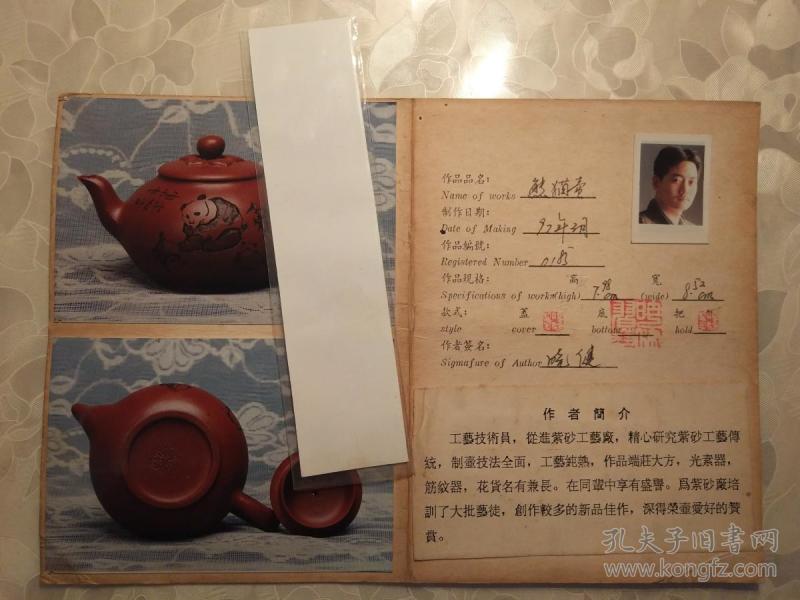 作品品名： 熊猫壶
Name of works
制作日期：
Date of Making 92年3月
作品編號：
Registered Number 0185
作品规格： 高 寬
Specifications of works(high) 7.98 cm (wide) 8.52 cm
款式： 盖 底 把
style cover bottom hold
作者簽名：
Signafure of Author
作者簡介
工藝技術員，從進紫砂工藝廠，精心研究紫砂工藝傳
統，制壷技法全面，工藝純熟，作品端莊大方，光素器，
筋紋器，花貨名有兼長。在同輩中享有盛譽。爲紫砂廠培
訓了大批藝徒，創作較多的新品佳作，深得榮壷愛好的贊
賞。
孔夫子旧书网
www.kongfz.com